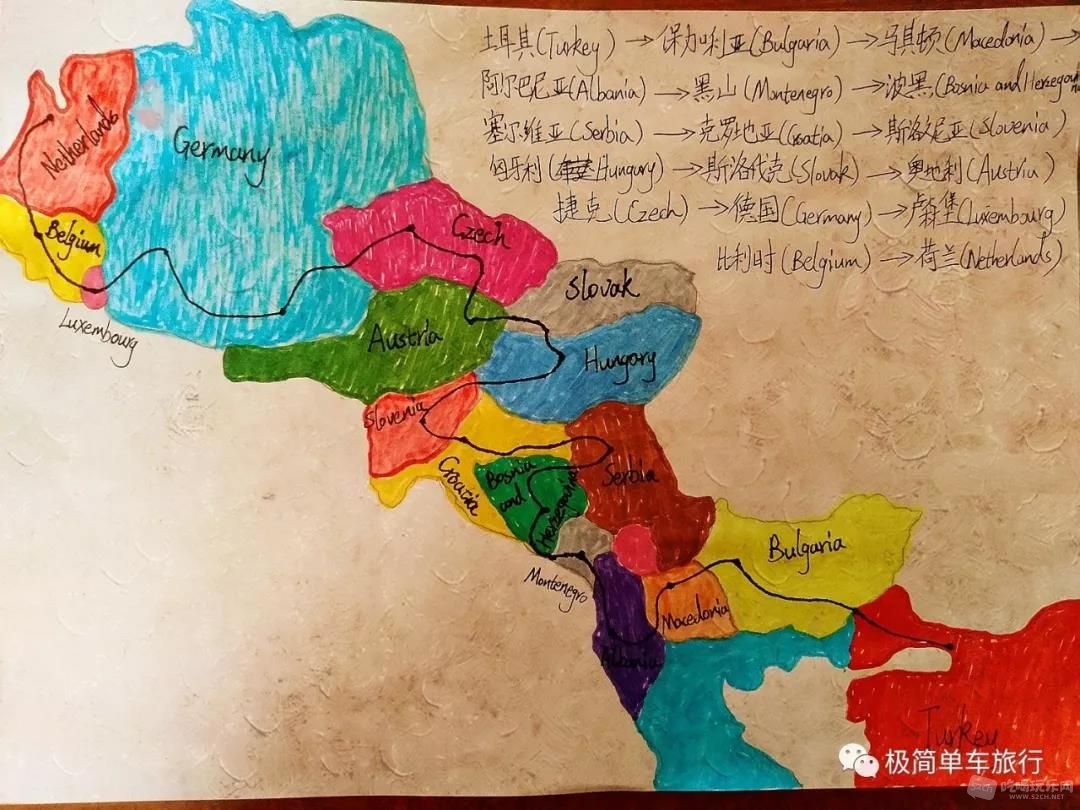 土耳其(Turkey) → 保加利亚(Bulgaria) → 马其顿(Macedonia) →
阿尔巴尼亚(Albania) → 黑山(Montenegro) → 波黑(Bosnia and Herzegovina
塞尔维亚(Serbia) → 克罗地亚(Croatia) → 斯洛尼亚(Slovenia)
匈牙利(Hungary) → 斯洛伐克(Slovak) → 奥地利(Austria)
捷克(Czech) → 德国(Germany) → 卢森堡(Luxembourg)
比利时(Belgium) → 荷兰(Netherlands)
Netherlands
Germany
Belgium
Luxembourg
Czech
Slovak
Austria
Hungary
Slovenia
Croatia
Bosnia
and
Herzegovina
Serbia
Montenegro
Bulgaria
Macedonia
Albania
Turkey
极简单车旅行
吃喝玩乐网
WWW.52CH.NET